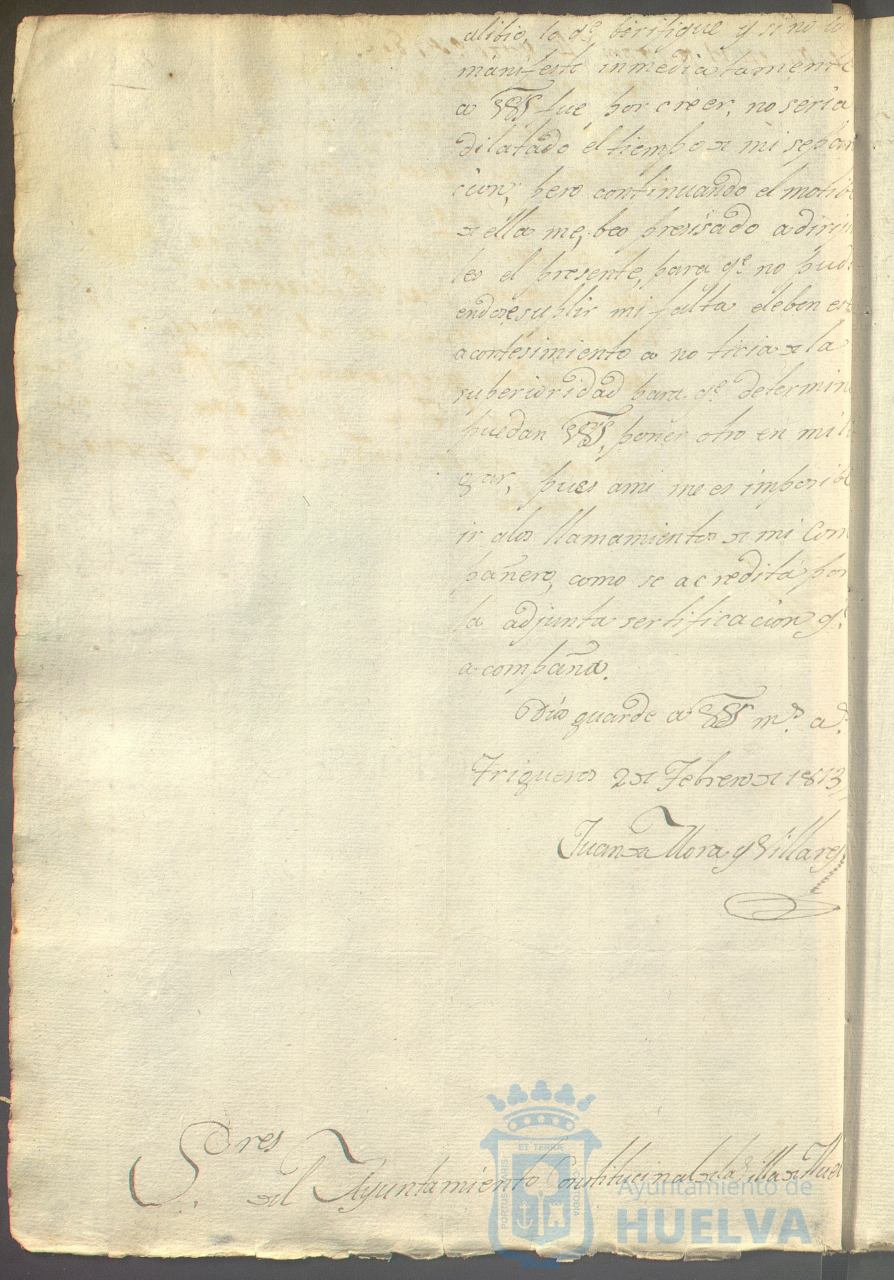 alibio, lo qe. berifique y si no lo
manifesté inmediatamente
a VSS fue, por creer, no seria
dilatado el tiempo de mi separa
cion; pero continuando el motibo
de ella me, beo presisado a diriji
les el presente, para qe. no pudi
endose, suplir mi falta eleben este
acontesimiento a noticia de la
superioridad para qe. determin
puedan VSS, poner otro en mi lu
gar, pues ami me es imposible
ir alos llamamientos de mi Com
pañero, como se acredita por
la adjunta sertificacion qe.
acompaña.
Dios guarde a VSS ms. as.
Trigueros 2 de Febrero de 1813
Juan de Mora y Villarej
Sres
del Ayuntamiento Constitucional de la Villa de Huel
ET TERRAE
CUSTODIA
Ayuntamiento de
HUELVA